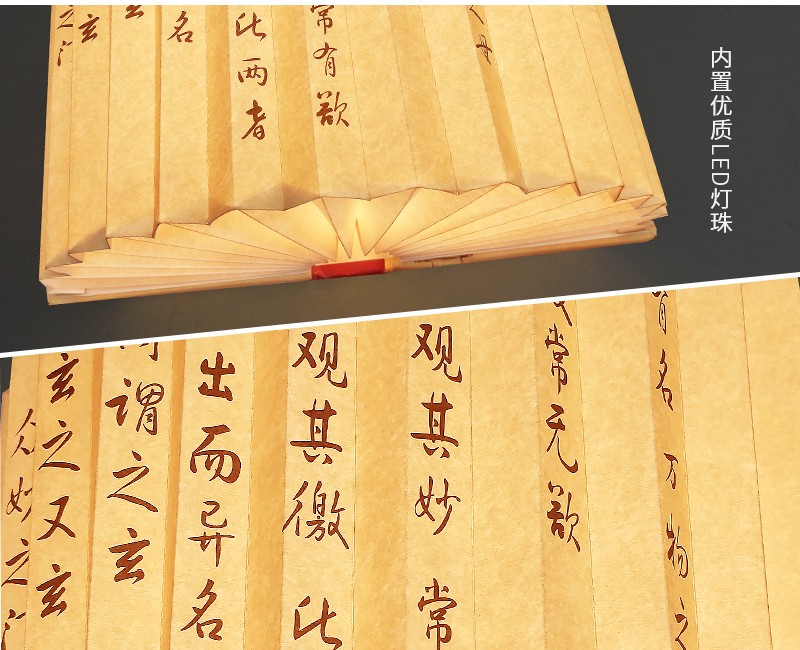 内置优质LED灯珠
母
常有欲
此两者
名
玄
玄
之
有名万物之
常无欲
观其妙常
观其徼此
出而异名
谓之玄
玄之又玄
众妙之